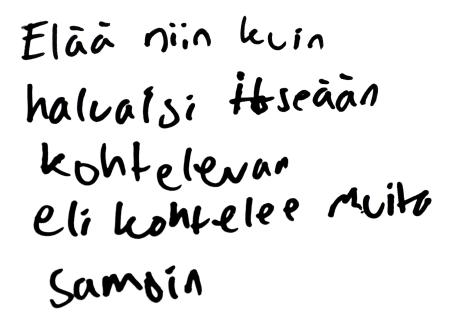 Elää niin kuin
haluaisi itseään
kohtelevan
eli kohtelee muita
samoin